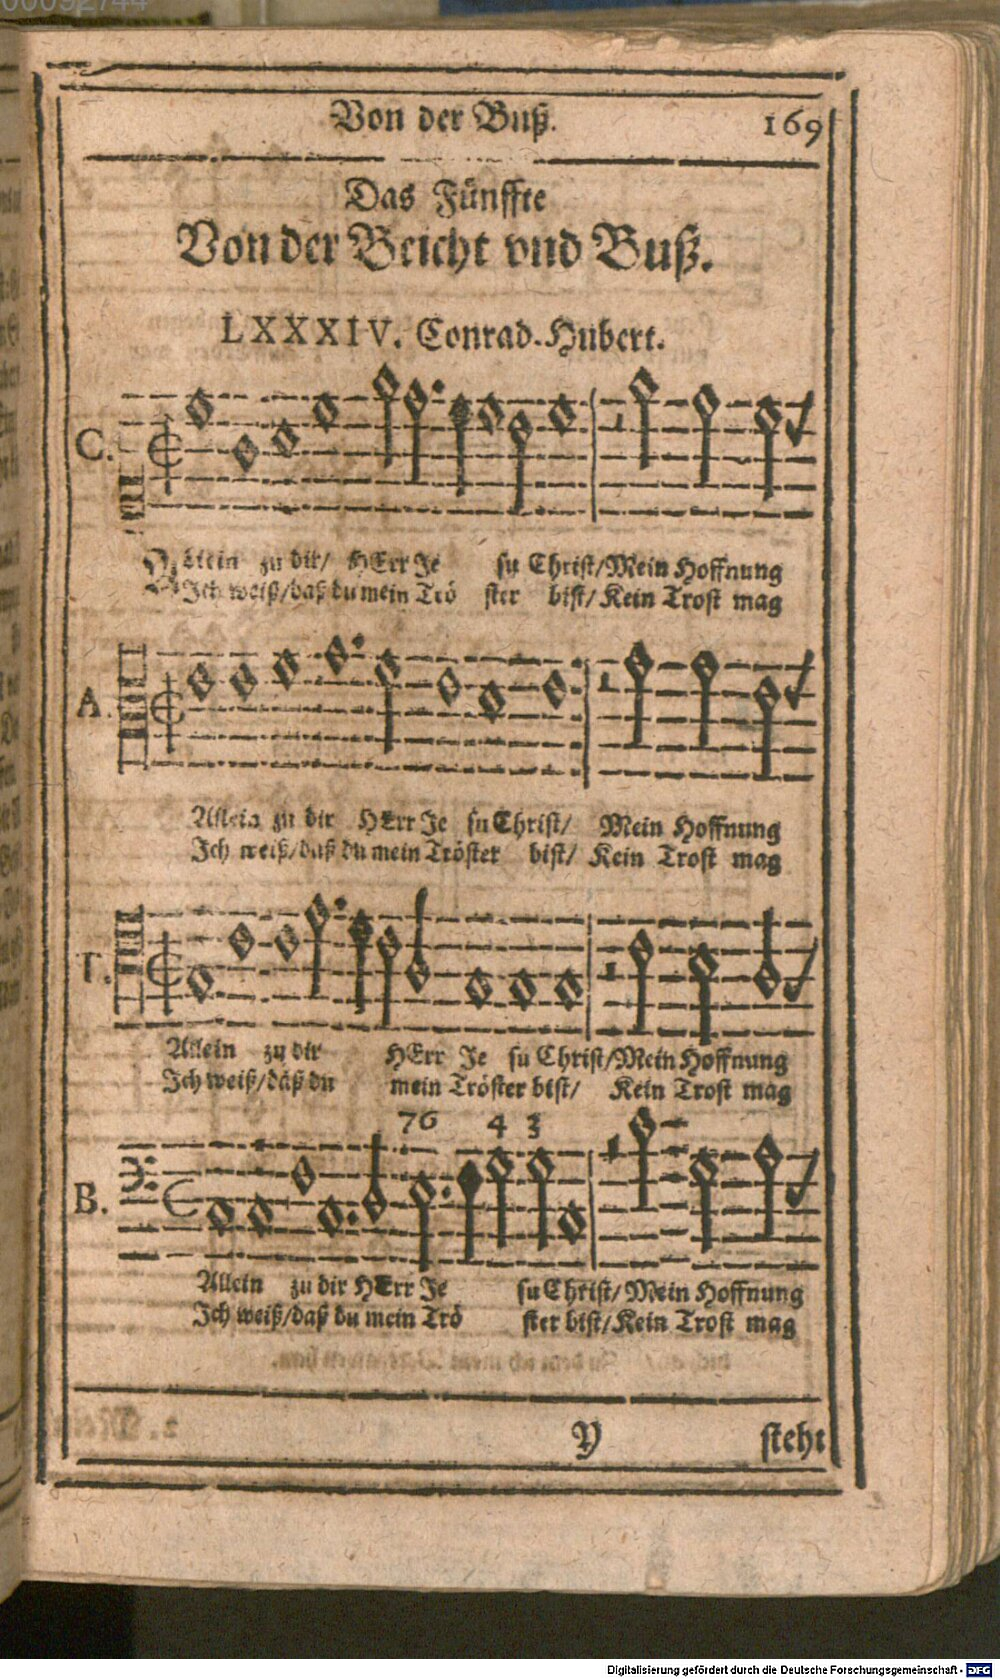 00092744
Von der Buß.
169
Das Fünffte
Von der Beicht vnd Buß.
LXXXIV. Conrad. Hubert.
C.
Allein zu dir/ HErr Je su Christ/ Mein Hoffnung
Ich weiß/daß du mein Trö ster bist/ Kein Trost mag
A.
Allein zu dir HErr Je su Christ/ Mein Hoffnung
Ich weiß/daß du mein Tröster bist/ Kein Trost mag
T.
Allein zu dir HErr Je su Christ/Mein Hoffnung
Ich weiß/daß du mein Tröster bist/ Kein Trost mag
76 4 3
B.
Allein zu dir HErr Je su Christ/ Mein Hoffnung
Ich weiß/daß du mein Trö ster bist/ Kein Trost mag
Y steht
Digitalisierung gefördert durch die Deutsche Forschungsgemeinschaft - DFG